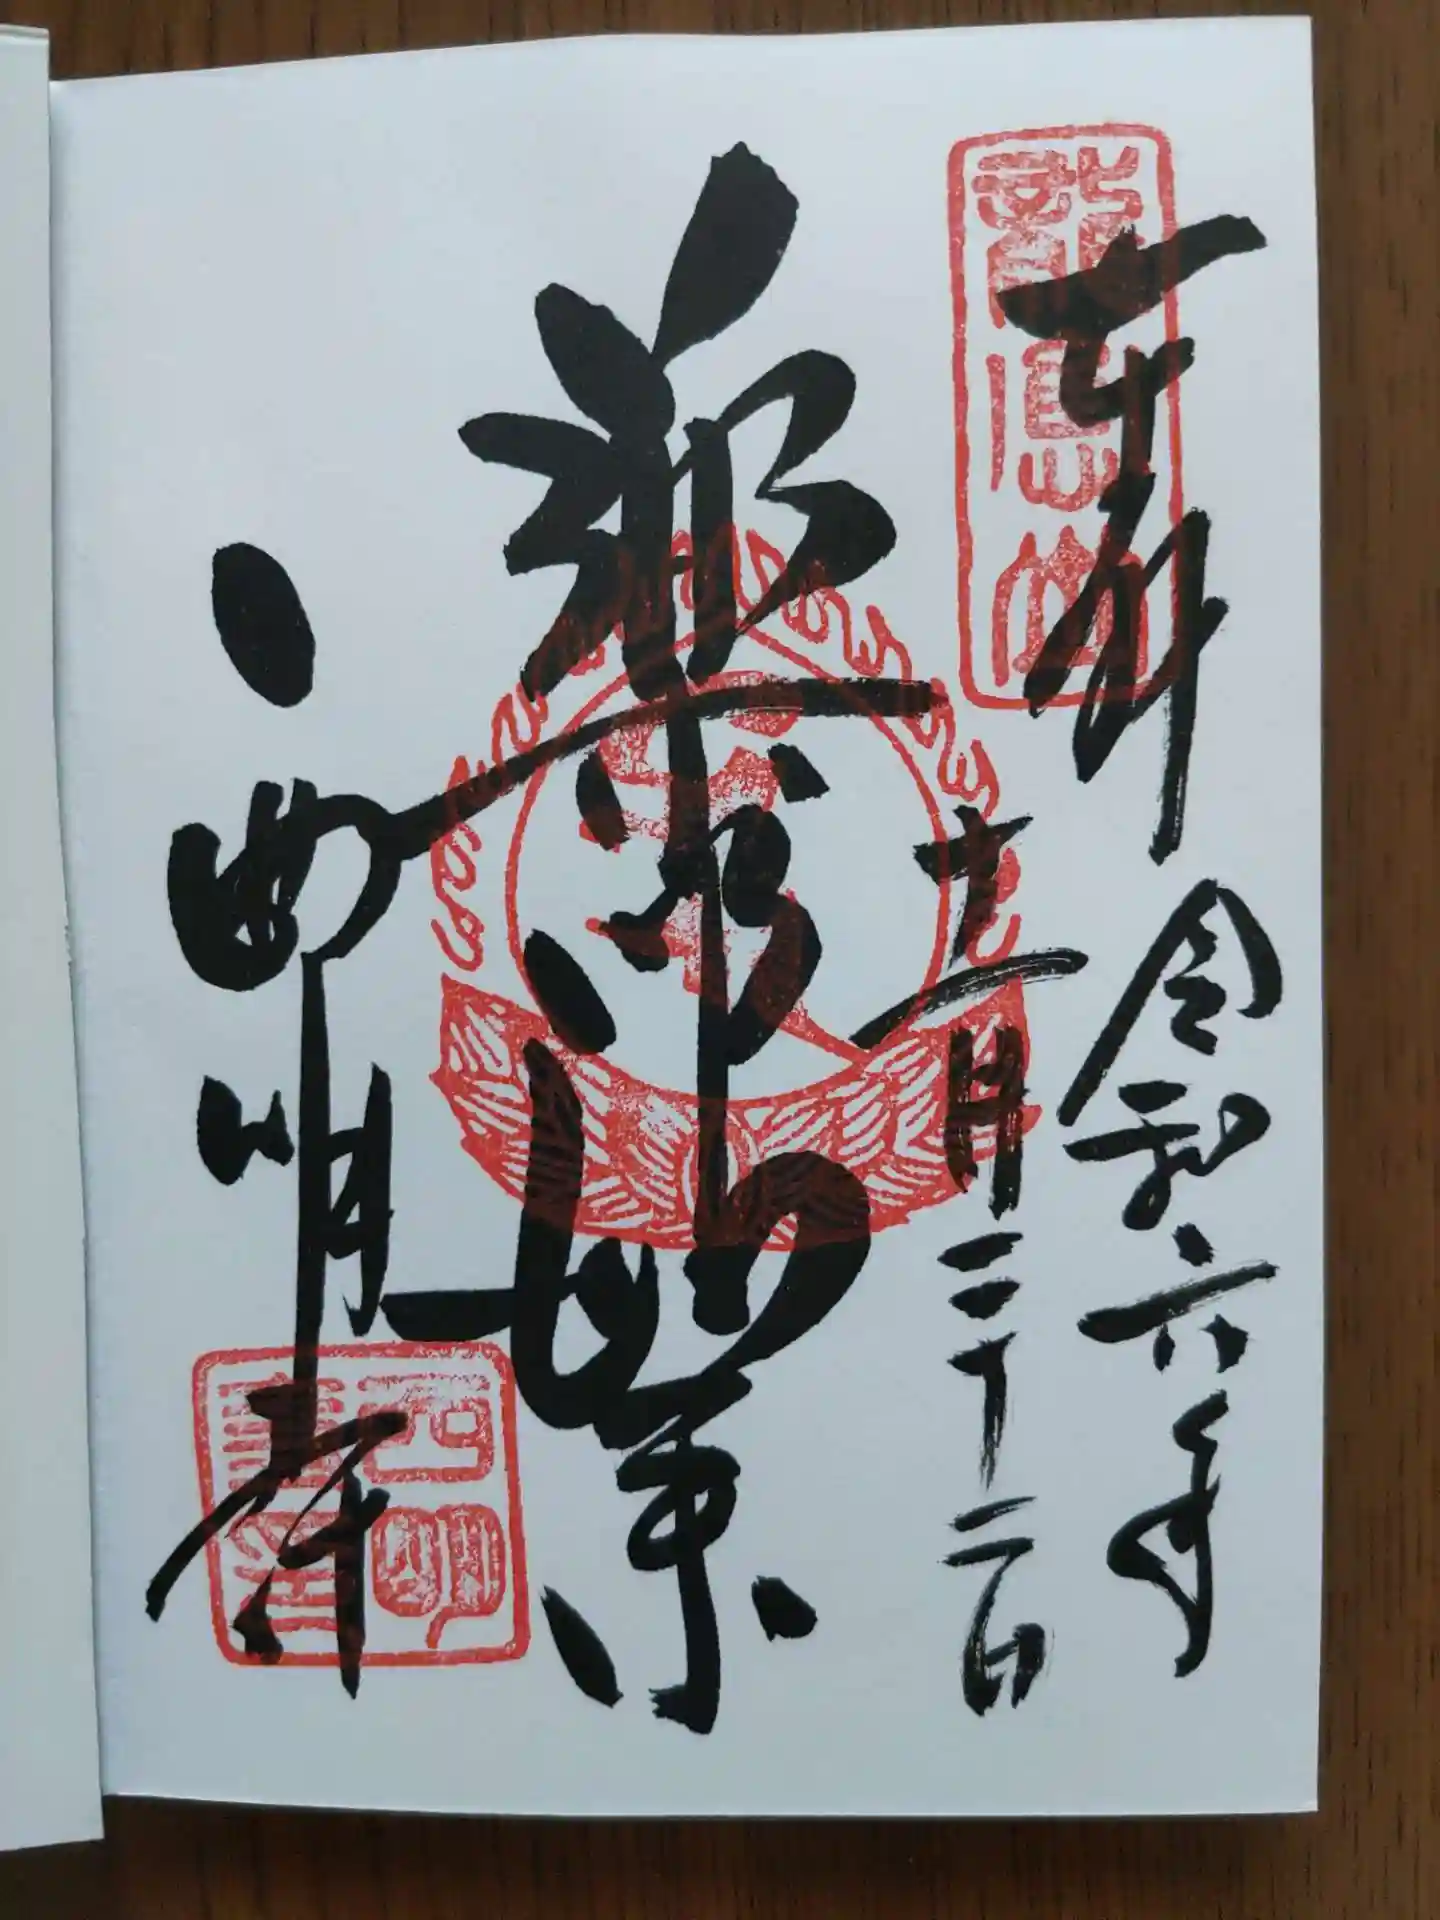 龍應山
奉拝 令和六年
十一月二十二日
薬師如来
西明寺